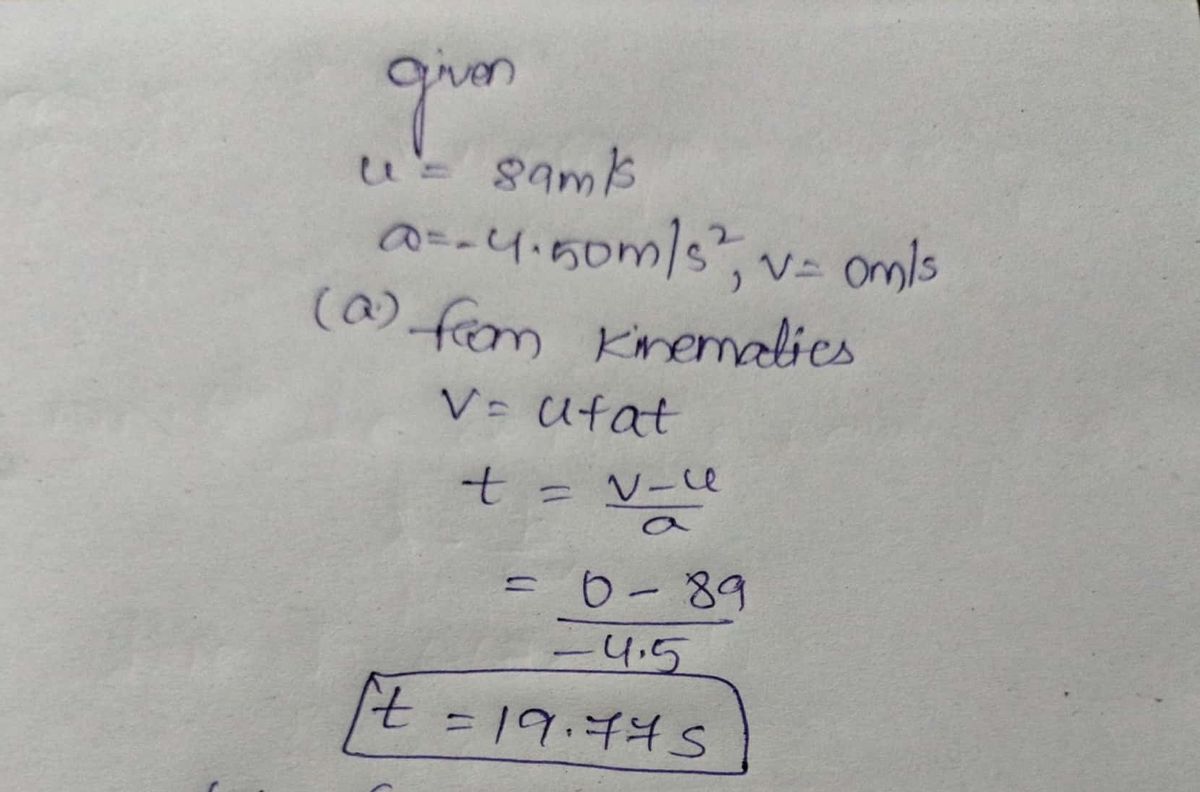 given
u = 89m/s
a=-4.50m/s², v= 0m/s
(a) from kinematics
v= u+at
t = v-u
a
= 0-89
-4.5
t = 19.77s